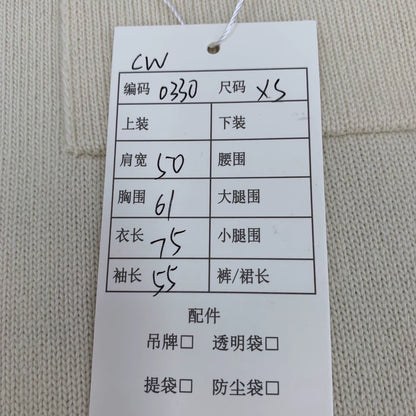 CW
编码 0330 尺码 XS
上装 下装
肩宽 50 腰围
胸围 61 大腿围
衣长 75 小腿围
袖长 55 裤/裙长
配件
吊牌□ 透明袋□
提袋□ 防尘袋□